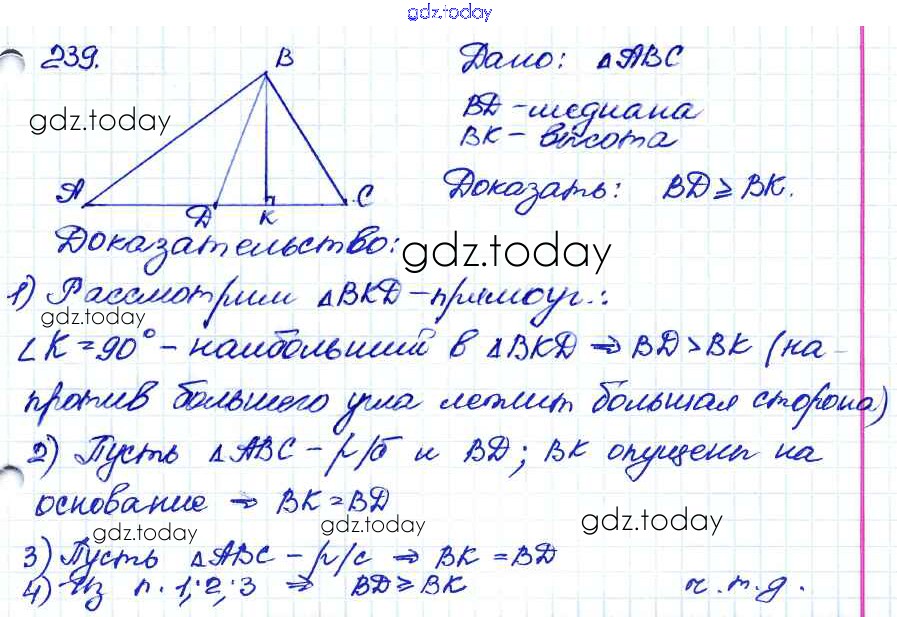 gdz.today
239.
B
Дано: △ABC
gdz.today
BD - медиана
BK - высота
A
D
K
C
Доказать: BD ≥ BK.
Доказательство:
gdz.today
1) Рассмотрим △BKD - прямоуг.:
gdz.today
∠K = 90° - наибольший в △BKD ⇒ BD > BK (на-
против большего угла лежит большая сторона)
2) Пусть △ABC - р/б и BD; BK опущены на
основание ⇒ BK = BD
gdz.today
gdz.today
gdz.today
3) Пусть △ABC - р/с ⇒ BK = BD
4) Из п. 1; 2; 3 ⇒ BD ≥ BK ч.т.д.